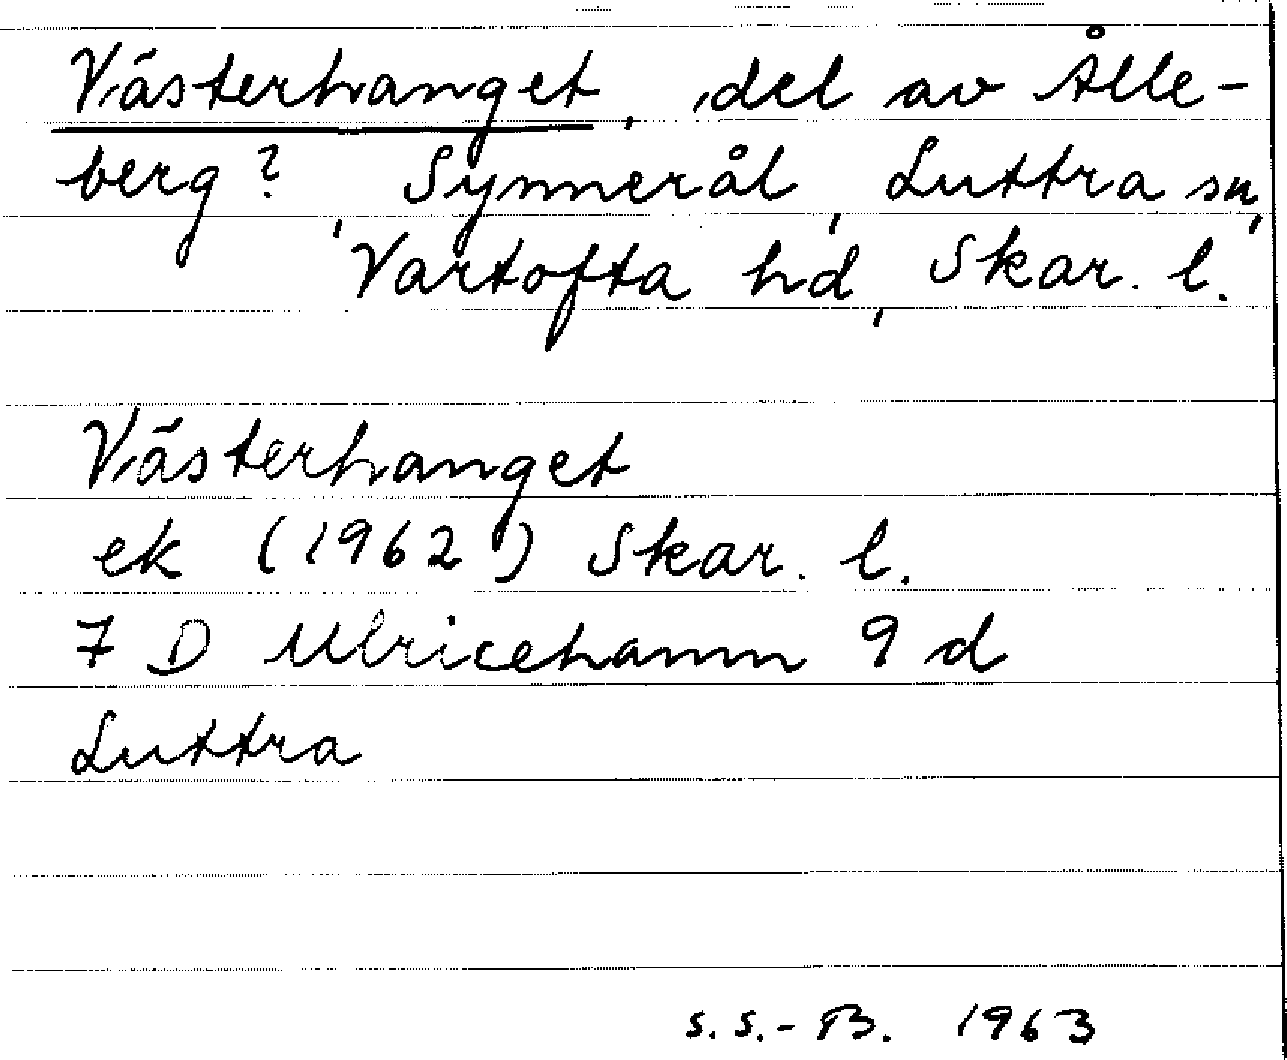 Västerhanget, del av Ålle-
berg? Synnerål, Luttra sn,
Vartofta hd, Skar. l.
Västerhanget
ek (1962) Skar. l.
7 D Ulricehamn 9 d
Luttra
S.S.-B. 1963